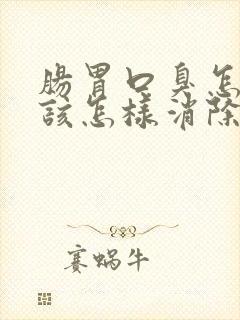 腸胃口臭怎
該怎樣消除
賽蝸牛